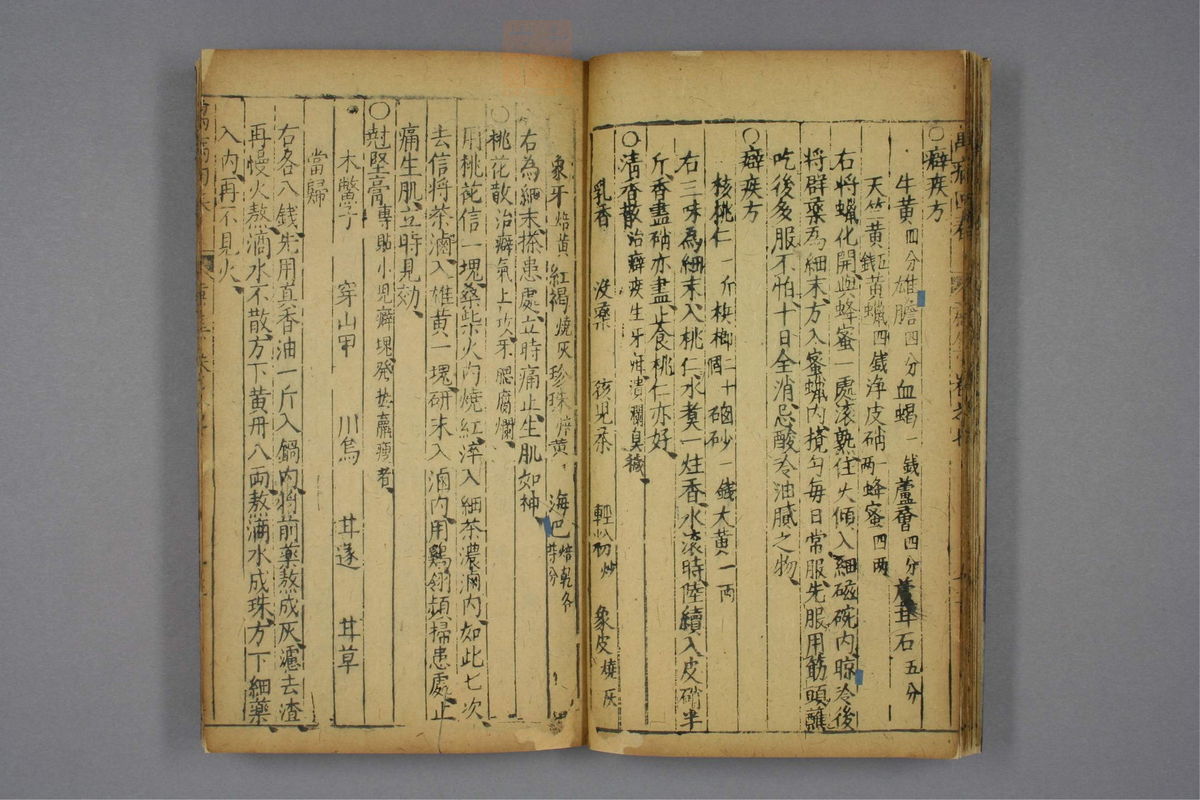 ○癖疾方
牛黄四分雄膽四分血竭一錢蘆薈四分 石五分
天竺黄五錢黄蠟四錢净皮硝一兩蜂蜜四兩
右將蠟化開與蜂蜜一處滾熟住火傾入細磁碗内晾冷後
將群藥為細末方入蜜蠟内攪勻每日常服先服用筋頭蘸
吃後多服不怕十日全消忌酸冷油膩之物
○癖疾方
核桃仁一斤梹榔二十個硇砂一錢大黄一兩
右三味為細末入桃仁水煑一炷香水滾時陸續入皮硝半
斤香盡硝亦盡止食桃仁亦好
○清香散治癖疾生牙疳潰爛臭穢
乳香 沒藥 孩兒茶 輕粉炒 象皮燒灰
象牙焙黄 紅褐燒灰 珍珠焙黄 海巴焙乾各等分
右為細末搽患處立時痛止生肌如神
○桃花散治癖氣上攻牙腮腐爛
用桃花信一塊桑柴火内燒紅淬入細茶濃滷内如此七次
去信將茶滷入雄黄一塊研末入滷内用鷄翎頻掃患處止
痛生肌立時見效
○尅堅膏專貼小兒癖塊發熱羸瘦者
木鱉子 穿山甲 川烏 甘遂 甘草
當歸
右各八錢先用真香油一斤入鍋内將前藥熬成灰濾去渣
再慢火熬滴水不散方下黄丹八兩熬滴水成珠方下細藥
入内再不見火